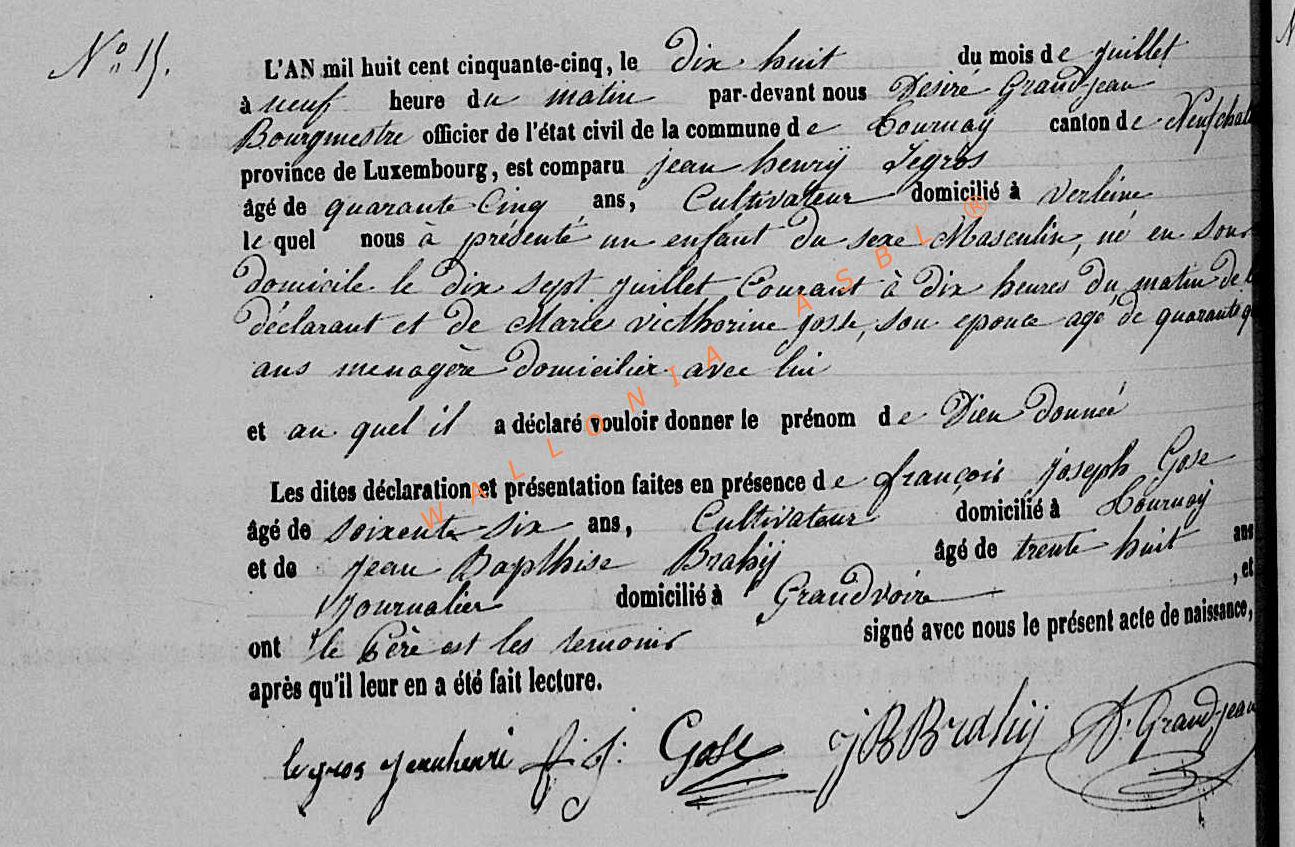 N° 15.
L'AN mil huit cent cinquante-cinq, le dix huit du mois de juillet
à neuf heure du matin par-devant nous Désiré Grand-jean
Bourgmestre officier de l'état civil de la commune de Tournay canton de Neufchat
province de Luxembourg, est comparu jean henrÿ Legros
âgé de quarante Cinq ans, Cultivateur domicilié à verleine
lequel nous à présenté un enfant du sexe Masculin, né en son
domicile le dix sept juillet Courant à dix heures du matin de
déclarant et de Marie victhorine josse, son epouce agé de quarante
ans menagère domicilier avec lui
et au quel il a déclaré vouloir donner le prénom de Dieu donnée
Les dites déclaration et présentation faites en présence de françois joseph Gose
âgé de soixente six ans, Cultivateur domicilié à Tournay
et de jean Bapthise Brahÿ âgé de trente huit ans
journalier domicilié à Grandvoir , et
ont le Père est les temoins signé avec nous le présent acte de naissance,
après qu'il leur en a été fait lecture.
legros jeanhenri f. j. Gose JB Brahÿ D. Grand-jean
WALLONIA ASBL ®